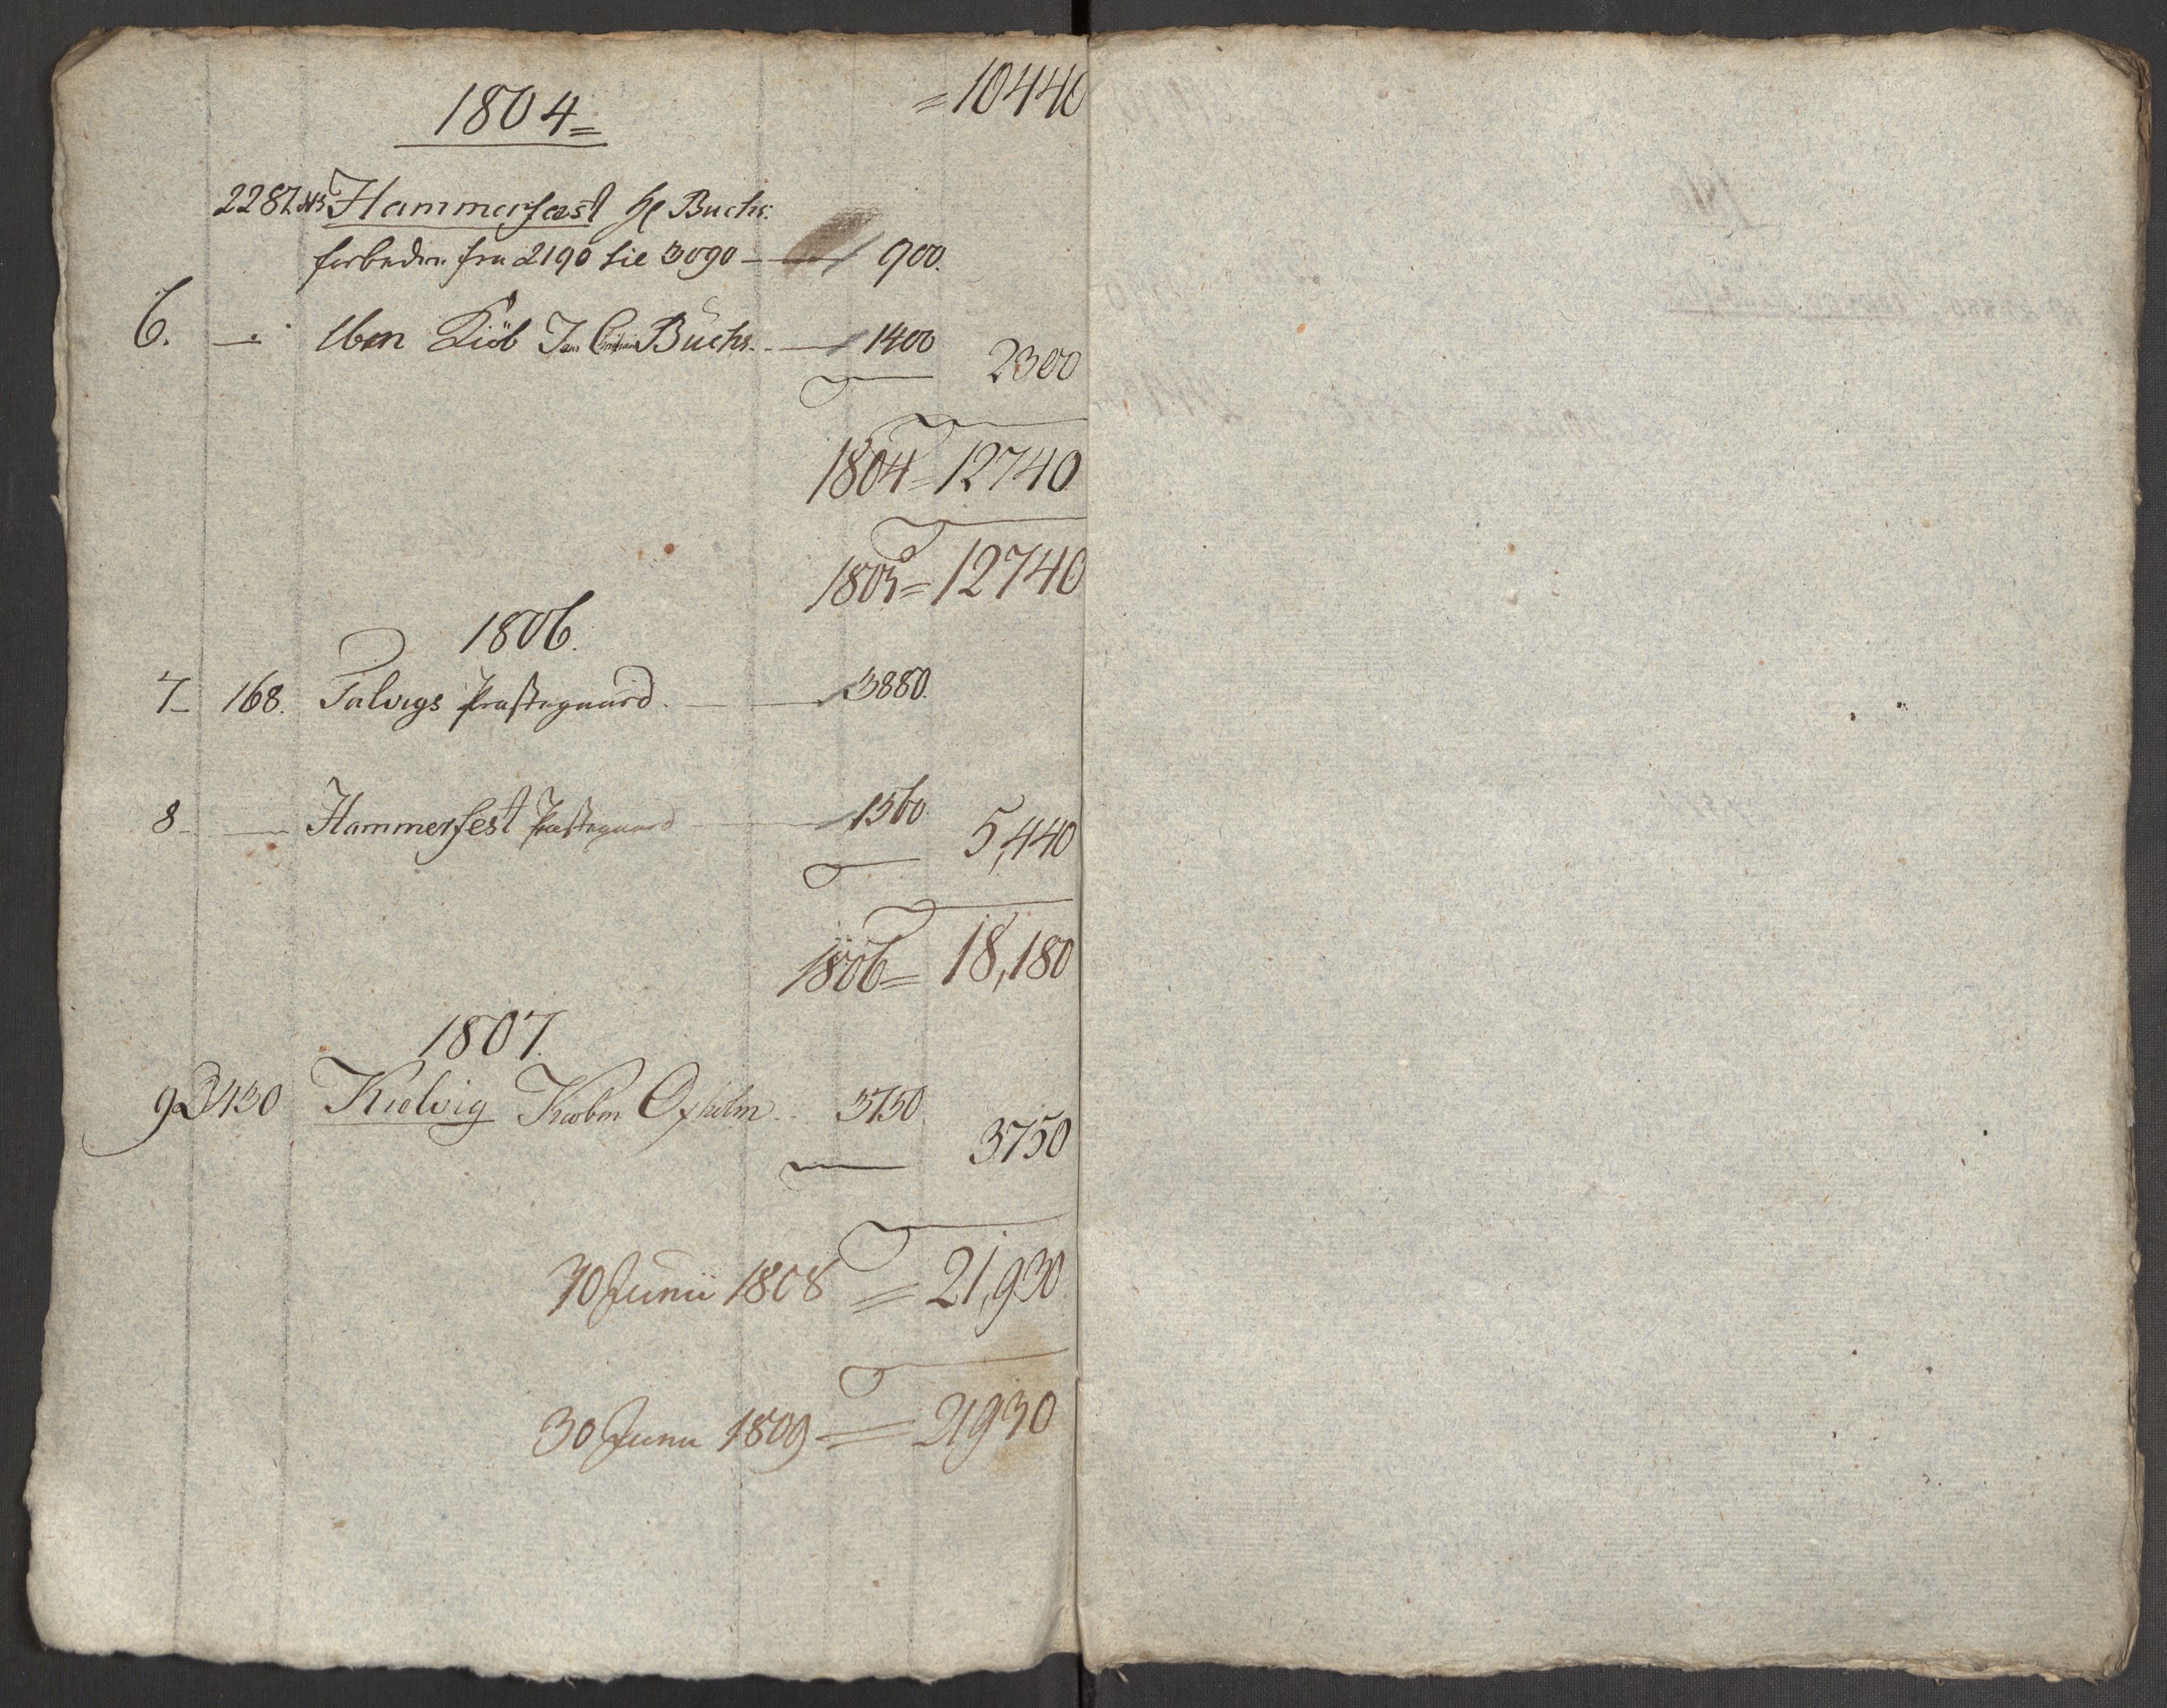 = 10440
1804 =
2287. N3 Hammerfæst Hr Buchs:
forbedre fra 2190 til 3090 — 900.
6. — " Ibm Kiöb Jan Buchs. — 1400
2300
1804 = 12740
1805 = 12740
1806.
7 — 168. Talvigs Præstegaard. — 3880.
8 — — Hammerfest Præstegaard — 1560.
5,440
1806 = 18,180
1807.
9 3430 Kielvig Kiøbm Oxholm. 3750.
3750
30 Junii 1808 = 21,930.
30 Junii 1809 = 21930